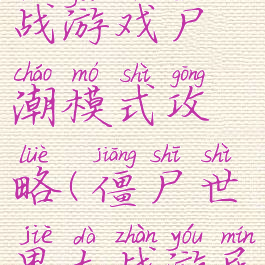 战游戏尸
cháo mó shì gōng
潮模式攻
lüè jiāng shī shì
略(僵尸世
jiè dà zhàn yóu mín
界大战游民